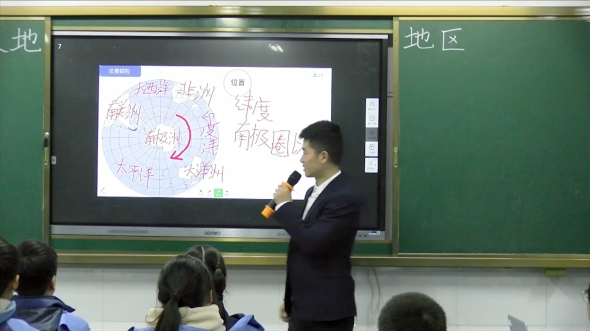 地
地区
7
位置
大西洋 非洲
南美洲
印度洋
纬度
南极洲
南极圈
太平洋
大洋洲